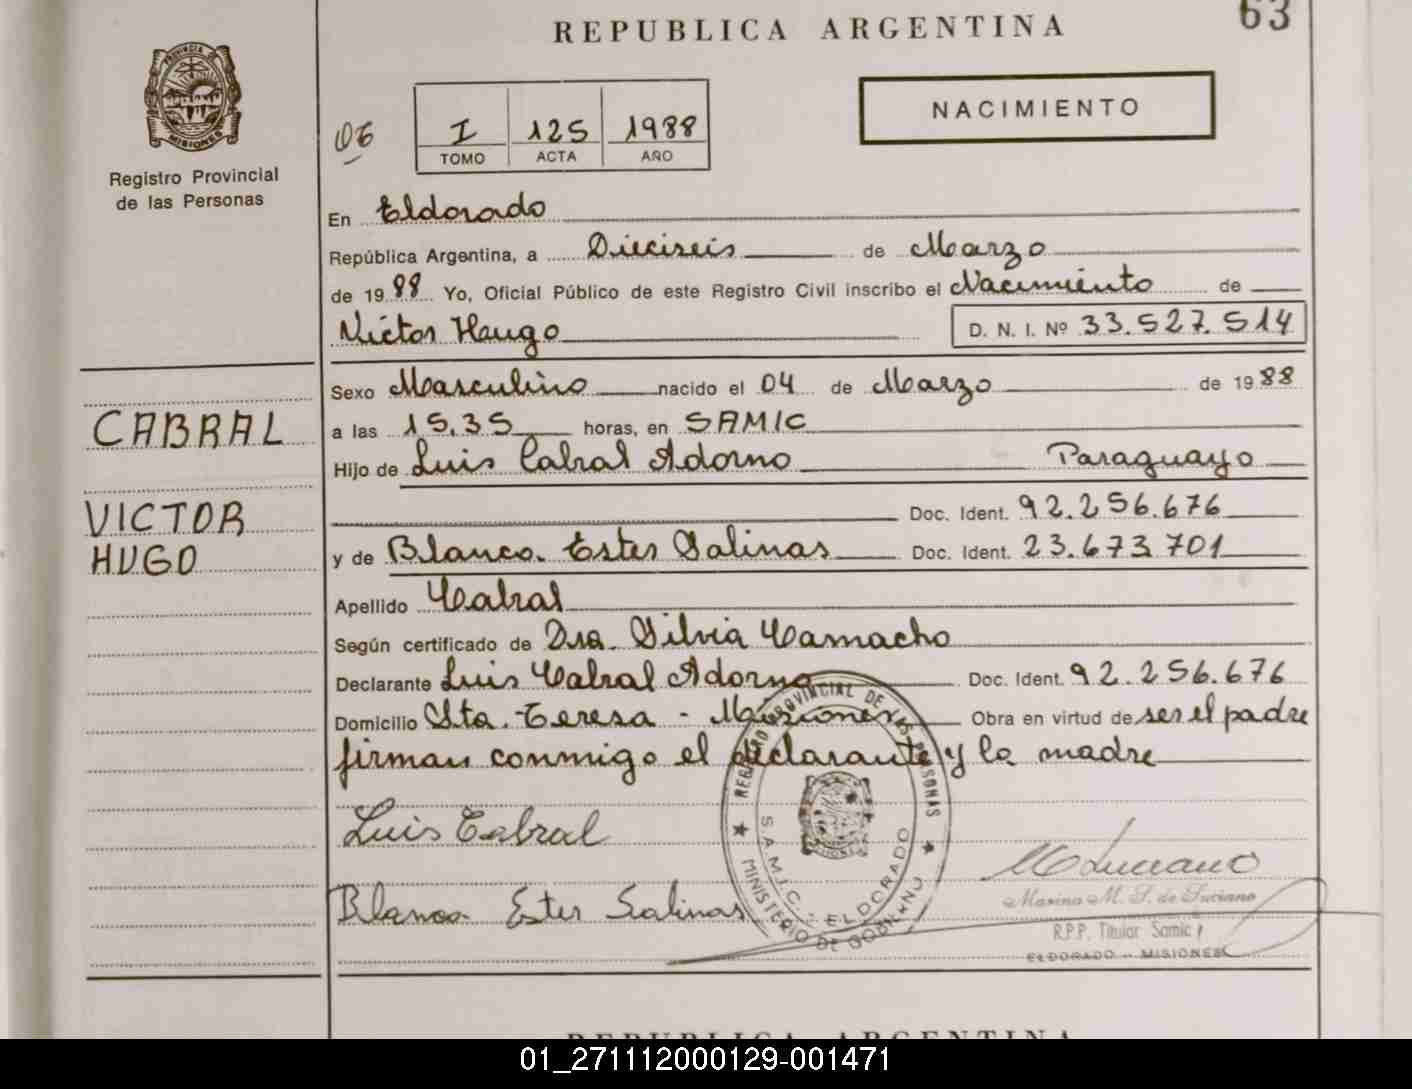 REPUBLICA ARGENTINA
63
PROVINCIA DE
MISIONES
Registro Provincial
de las Personas
06
I 125 1988
TOMO ACTA AÑO
NACIMIENTO
En Eldorado
República Argentina, a Dieciseis de Marzo
de 1988 Yo, Oficial Público de este Registro Civil inscribo el Nacimiento de
Victor Hugo D. N. I. Nº 33.527.514
Sexo Masculino nacido el 04 de Marzo de 1988
a las 15,35 horas, en SAMIC
Hijo de Luis Cabral Adorno Paraguayo
Doc. Ident. 92.256.676
y de Blanca Ester Salinas Doc. Ident. 23.673 701
Apellido Cabral
Según certificado de Dra. Silvia Camacho
Declarante Luis Cabral Adorno Doc. Ident. 92.256.676
Domicilio Sta. Teresa - Misiones Obra en virtud de ser el padre
firman conmigo el declarante y la madre
CABRAL
VICTOR
HUGO
Luis Cabral
Blanca Ester Salinas
REGISTRO PROVINCIAL DE LAS PERSONAS
S.A.M.I.C. - ELDORADO
MINISTERIO DE GOB.
M Luciano
Marina M. S. de Luciano
R.P.P. Titular Samic
ELDORADO - MISIONES
REPUBLICA ARGENTINA
01_271112000129-001471